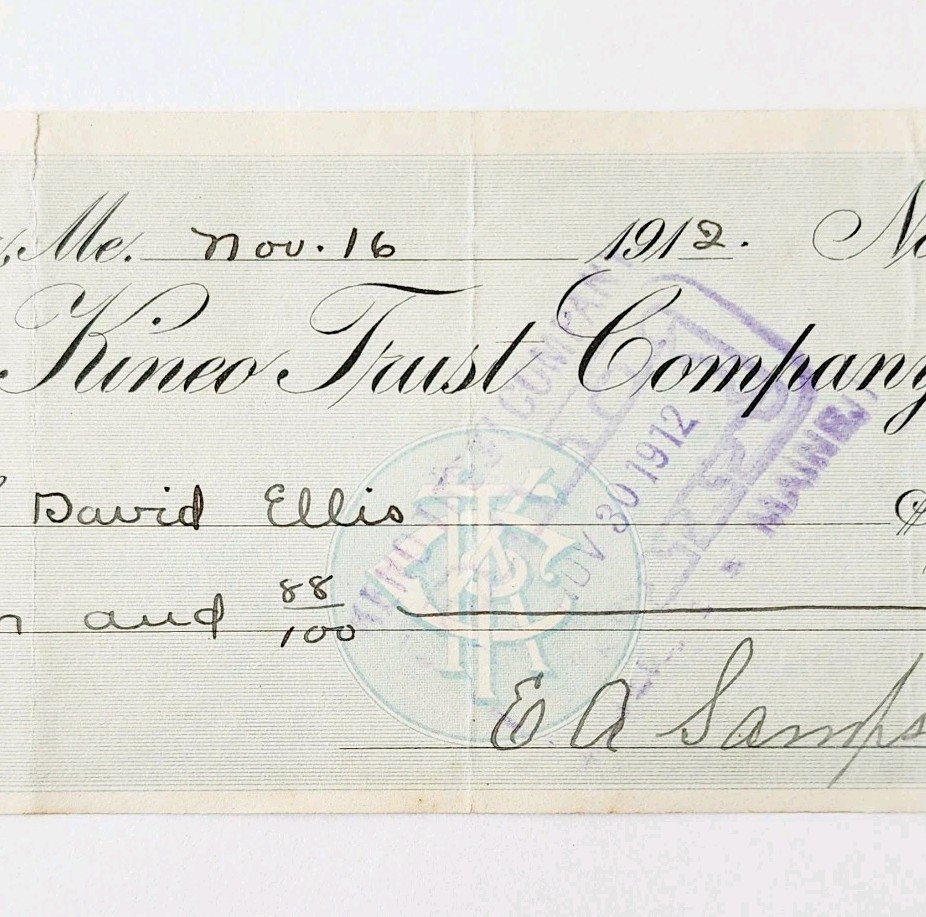 Me. Nov. 16 1912. No
Kineo Trust Company
David Ellis $
and 88/100
E. A. Samps
COMPANY
NOV 30 1912
MAINE